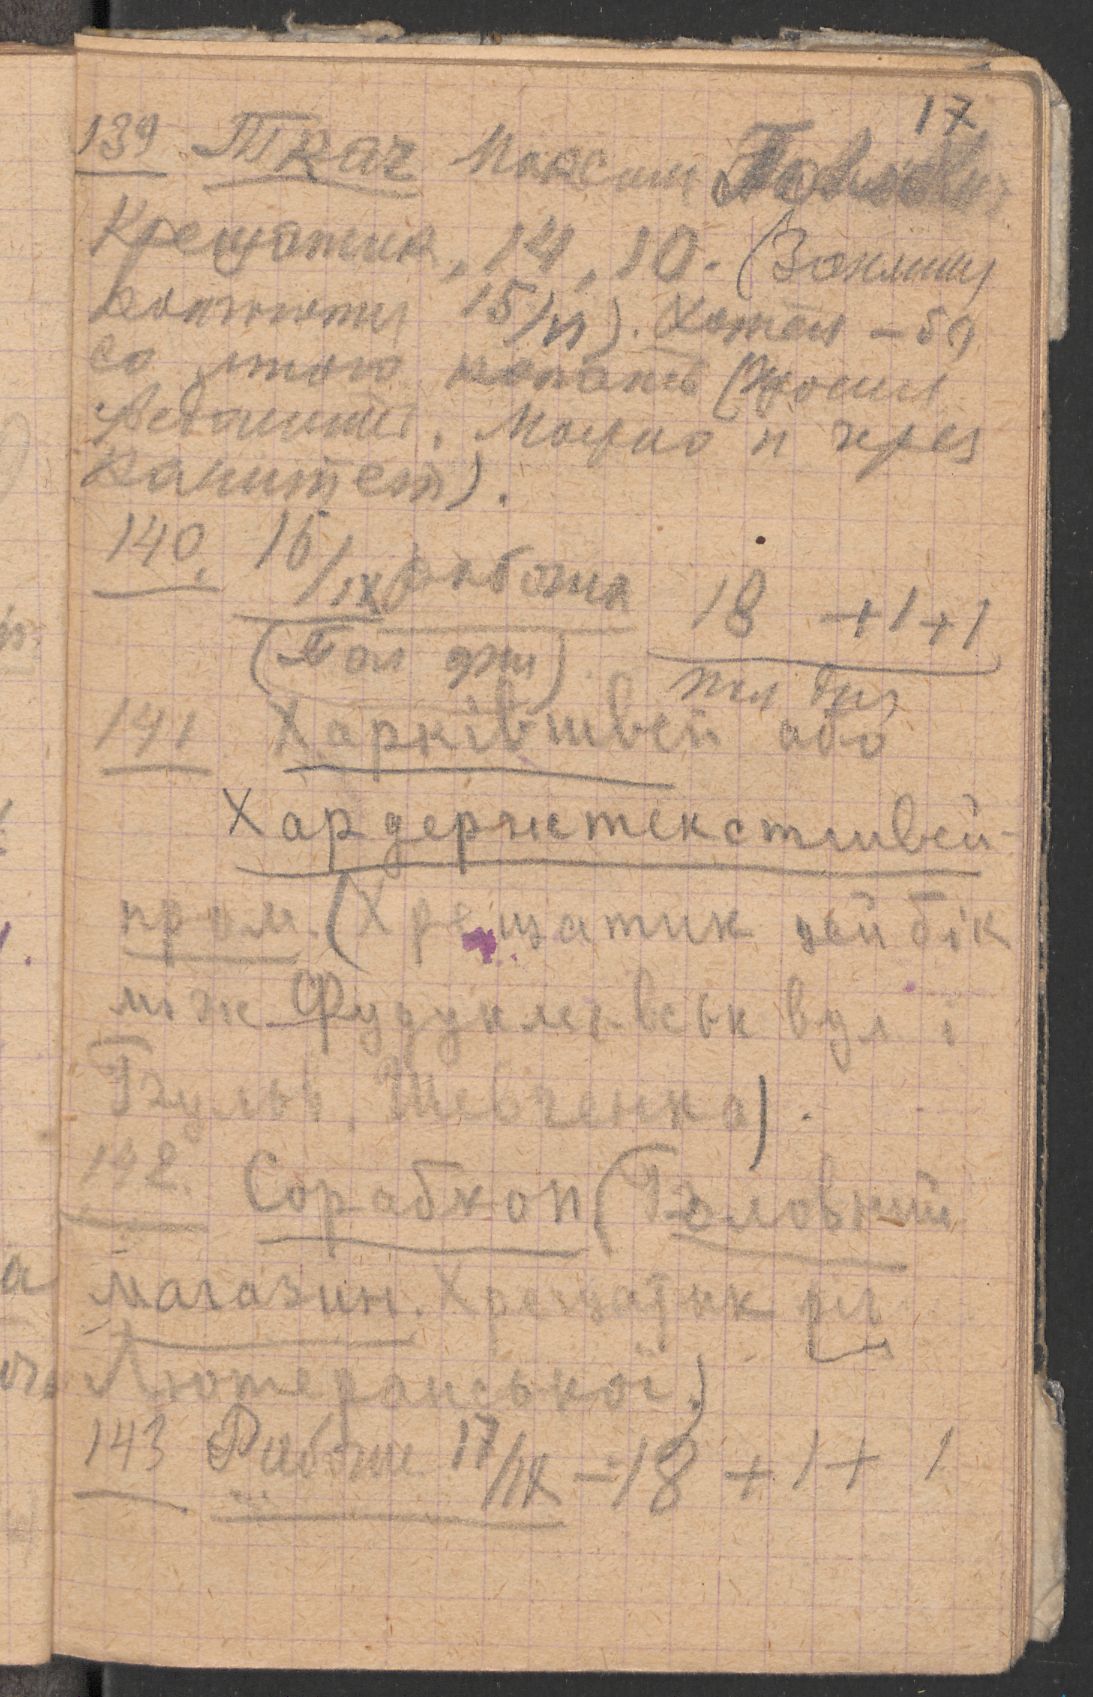 17
139 Ткач Максим Павлович
Крещатик, 14, 10.
15/VI). Хотел – бы
со мною копать
Можно и через
Комитет).
140. 16/IX работа 18 + 1 + 1
(Пол дня) пол дня
141 Харківшвей або
Хардержтекстшвей-
пром. (Хрещатик цей бік
між Фундуклеївськ вул і
Бульв. Шевченка).
142. Сорабкоп (Головний
магазин. Хрещатик ріг
Лютеранської.)
143 Работа 17/IX – 18 + 1 + 1